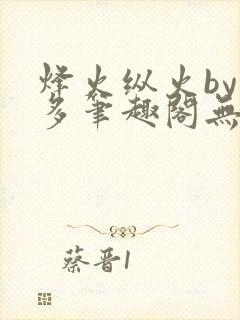 烽火纵火by
多笔趣阁無
蔡晋1